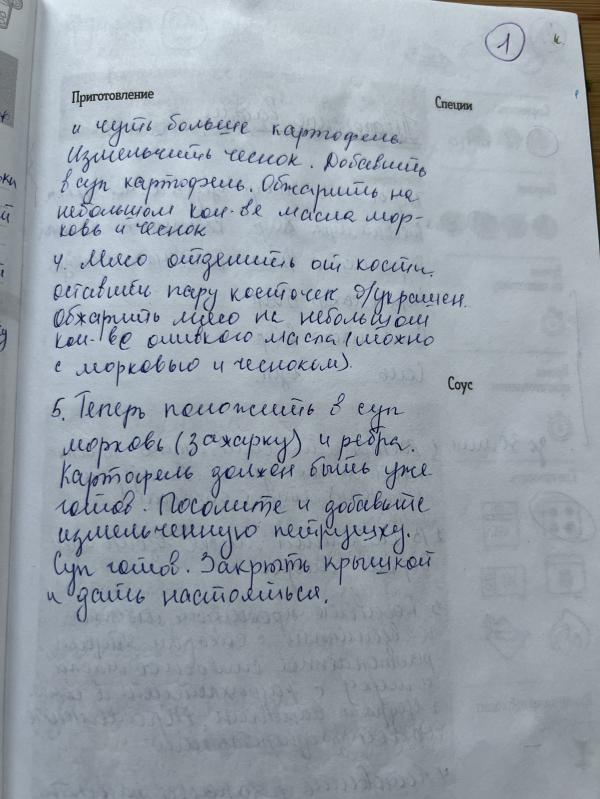 1
Приготовление
Специи
и чуть больше картофель.
Измельчить чеснок. Добавить
в суп картофель. Обжарить на
небольшом кол-ве масла мор-
ковь и чеснок
4. Мясо отделить от кости,
оставив пару косточек д/украшен.
Обжарить мясо на небольшом
кол-ве оливкого масла (можно
с морковью и чесноком).
Соус
5. Теперь положить в суп
морковь (зажарку) и ребра.
Картофель должен быть уже
готов. Посолите и добавьте
измельченную петрушку.
Суп готов. Закрыть крышкой
и дать настояться.